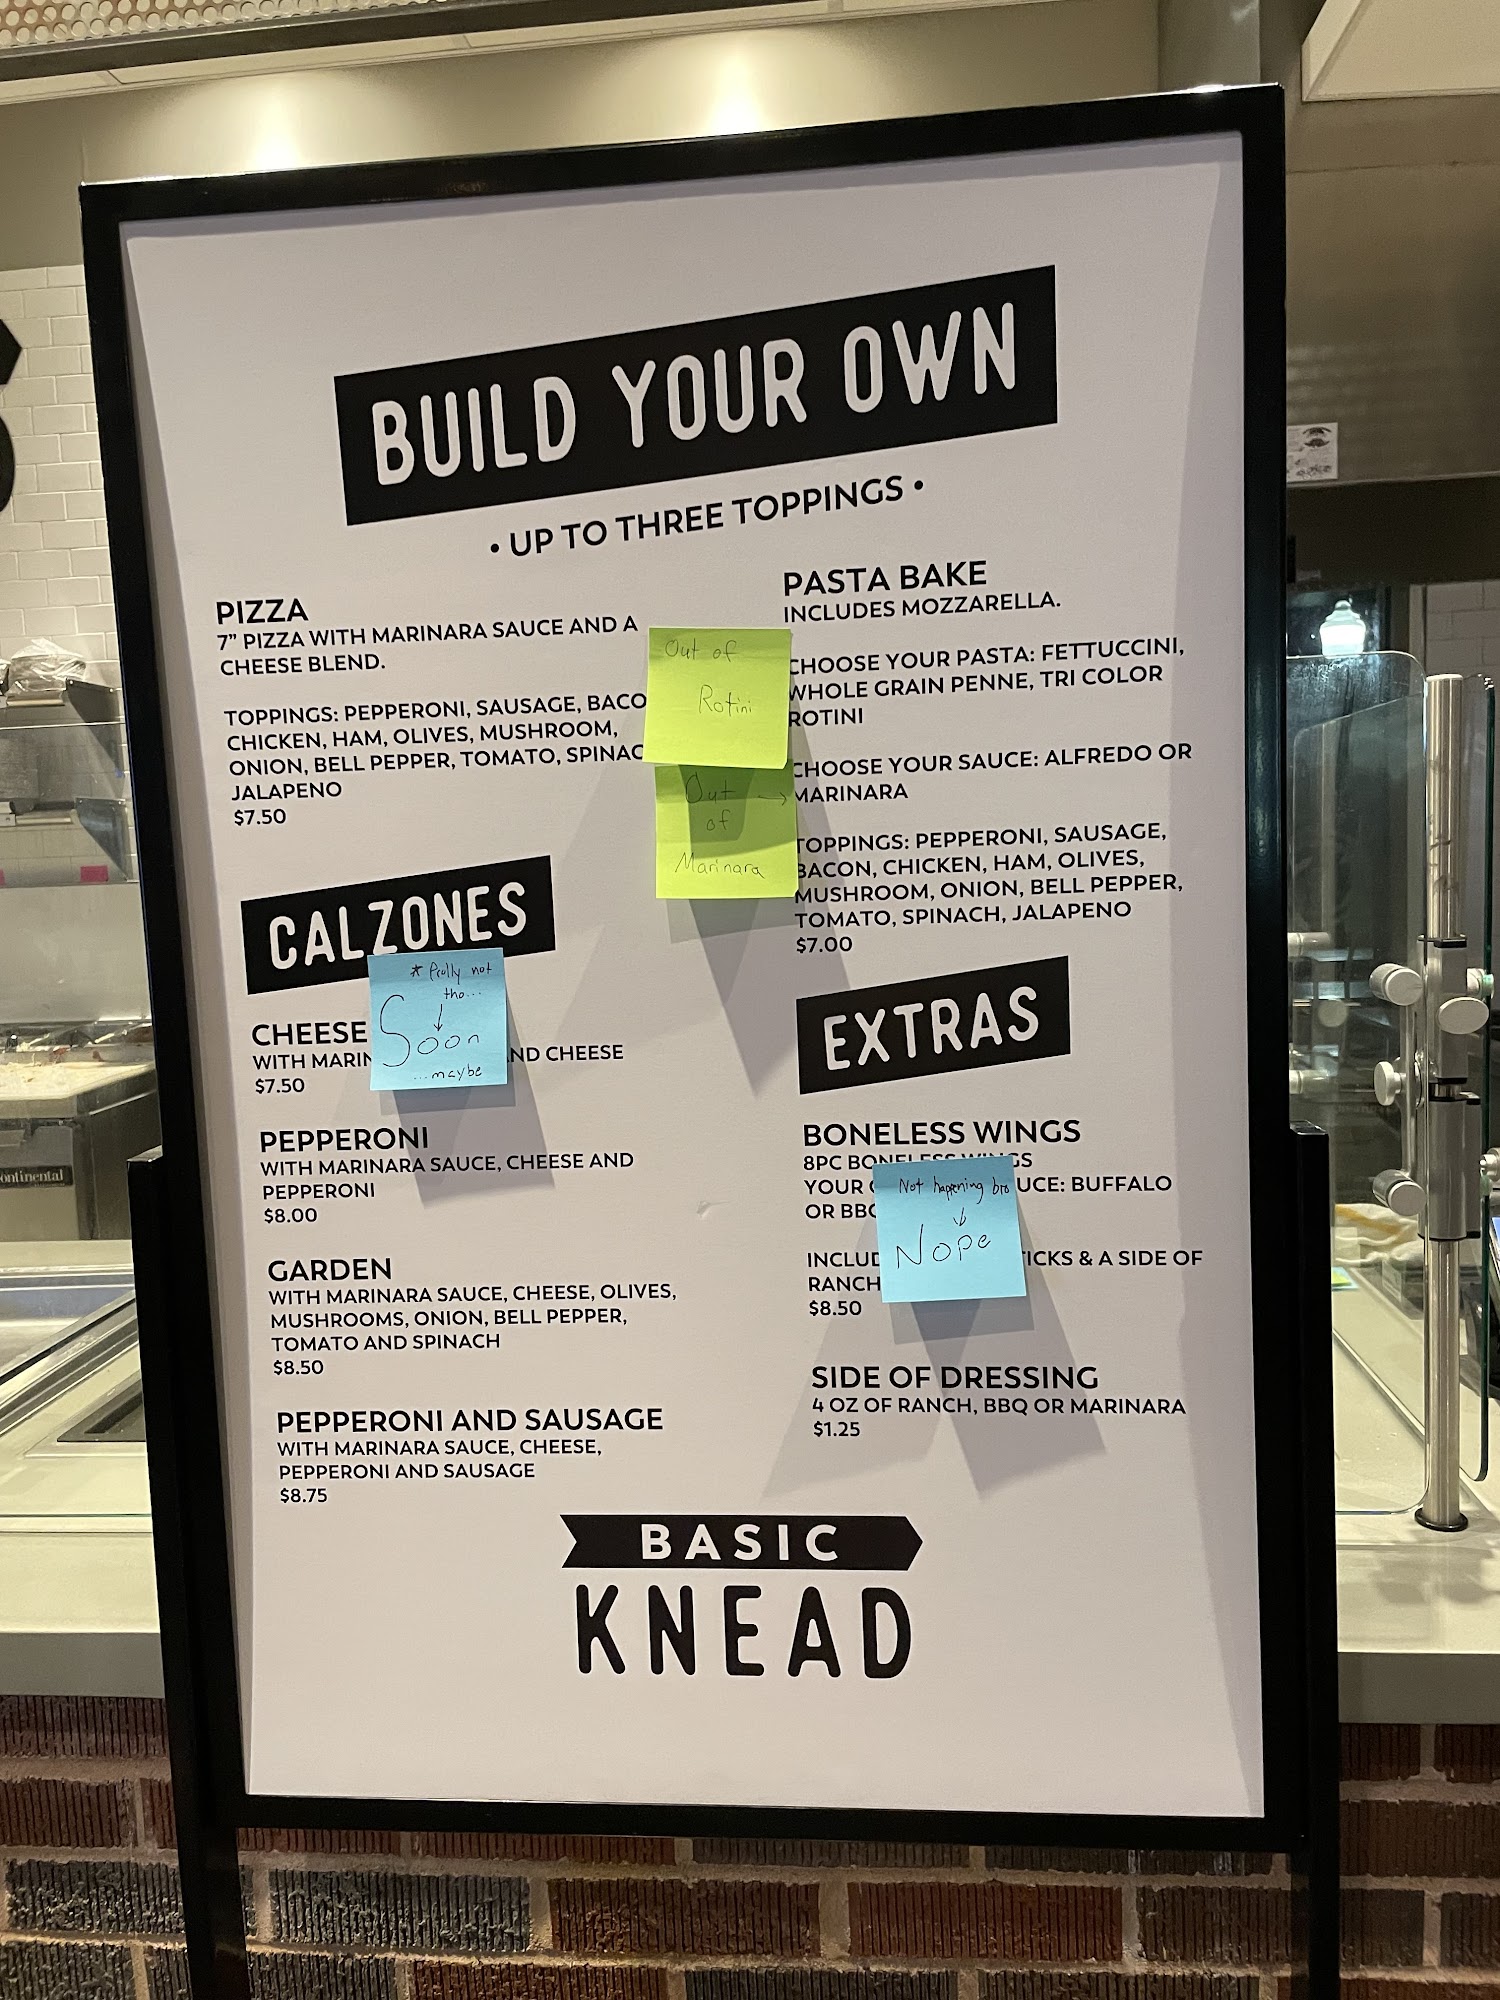 BUILD YOUR OWN
• UP TO THREE TOPPINGS •
PIZZA
7” PIZZA WITH MARINARA SAUCE AND A
CHEESE BLEND.
TOPPINGS: PEPPERONI, SAUSAGE, BACO
CHICKEN, HAM, OLIVES, MUSHROOM,
ONION, BELL PEPPER, TOMATO, SPINAC
JALAPENO
$7.50
Out of
Rotini
Out →
of
Marinara
PASTA BAKE
INCLUDES MOZZARELLA.
CHOOSE YOUR PASTA: FETTUCCINI,
WHOLE GRAIN PENNE, TRI COLOR
ROTINI
CHOOSE YOUR SAUCE: ALFREDO OR
MARINARA
TOPPINGS: PEPPERONI, SAUSAGE,
BACON, CHICKEN, HAM, OLIVES,
MUSHROOM, ONION, BELL PEPPER,
TOMATO, SPINACH, JALAPENO
$7.00
CALZONES
* Prolly not
tho...
↓
Soon
...maybe
CHEESE
WITH MARIN ND CHEESE
$7.50
PEPPERONI
WITH MARINARA SAUCE, CHEESE AND
PEPPERONI
$8.00
GARDEN
WITH MARINARA SAUCE, CHEESE, OLIVES,
MUSHROOMS, ONION, BELL PEPPER,
TOMATO AND SPINACH
$8.50
PEPPERONI AND SAUSAGE
WITH MARINARA SAUCE, CHEESE,
PEPPERONI AND SAUSAGE
$8.75
EXTRAS
BONELESS WINGS
8PC BONELESS WINGS
YOUR UCE: BUFFALO
OR BBQ
INCLUD ICKS & A SIDE OF
RANCH
$8.50
Not happening bro
↓
Nope
SIDE OF DRESSING
4 OZ OF RANCH, BBQ OR MARINARA
$1.25
BASIC
KNEAD
ontinental